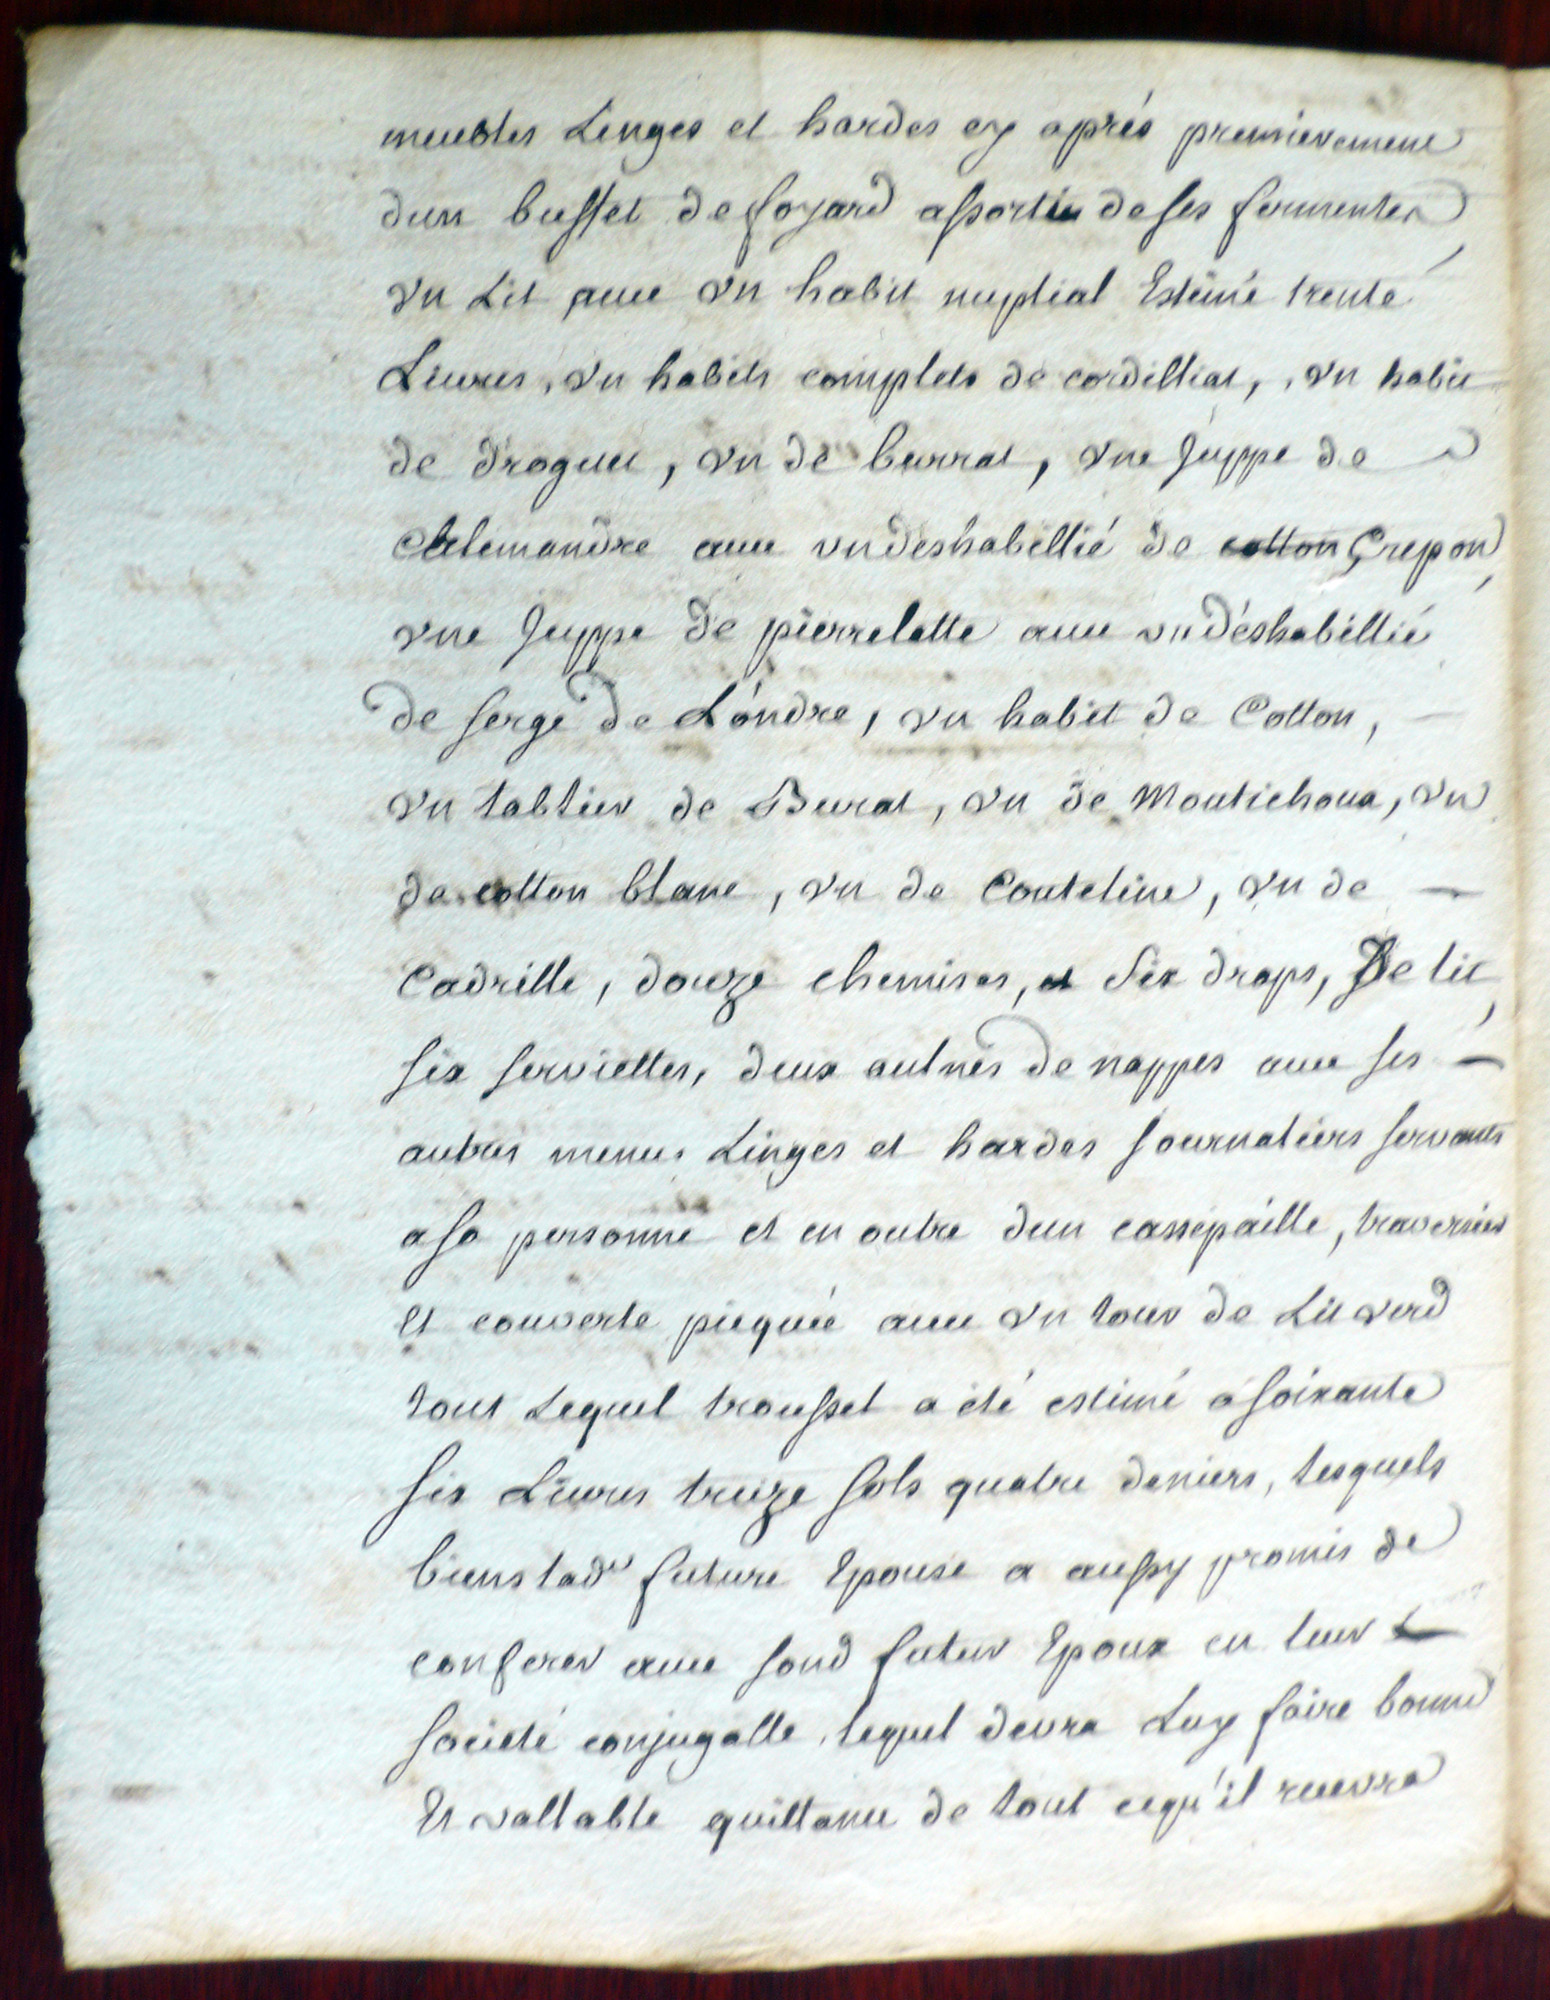 meubles Linges et hardes cy aprés premierement
dun buffet de foyard assortie de ses fermentes,
vn Lit auec vn habit nuptial Estimé trente
Liures, vn habits complets de cordilliat, vn habit
de droguet, vn de burrat, vne Juppe de
Calemandre auec vn deshabillié de cotton Crepon,
vne Juppe de pierrelatte auec vn déshabillié
de serge de Lóndre, vn habit de Cotton,
vn tablier de Burat, vn de Montichoux, vn
de cotton blanc, vn de Couteline, vn de
Cadrille, douze chemises, et Six draps, De lit,
six serviettes, deux aulnes de nappes auec ses
autres menus Linges et hardes Journaliers servants
a sa personne et en outre dun cassepaille, traversier
Et couverte piequée auec vn tour de Lit verd
tout Lequel trousset a été estimé a soixante
six Liures treize sols quatre deniers, lesquels
biens lad.e future Epouse a aussy promis de
conferer auec sond futur Epoux en leur
société conjugalle, lequel deura Luy faire bonne
Et vallable quittance de tout cequ'il receura